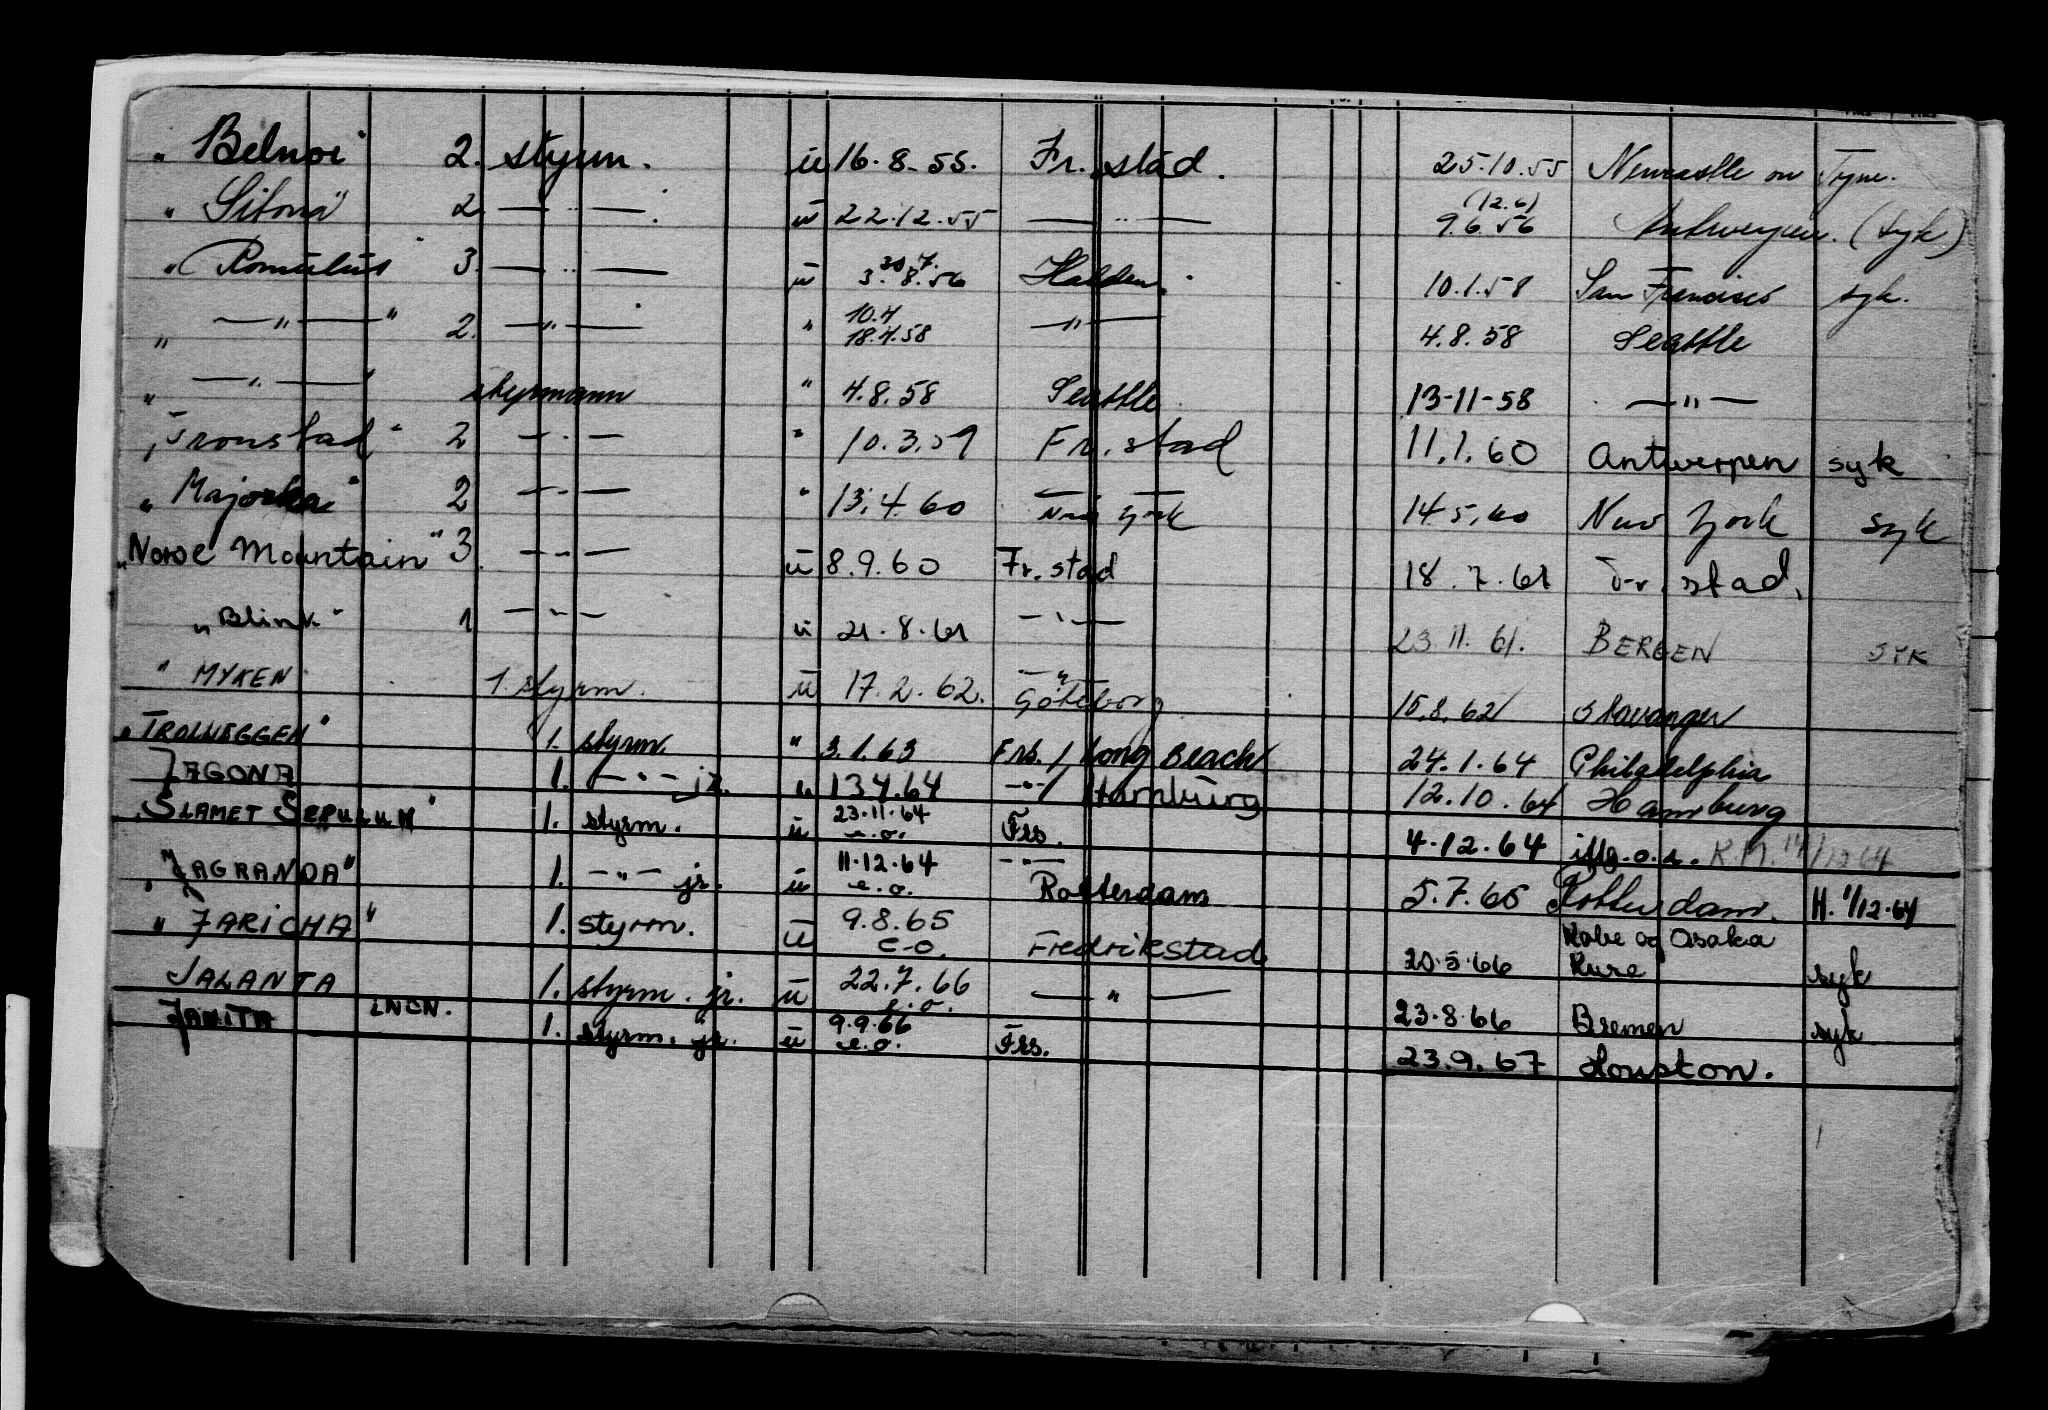 „ Belnor" 2. styrm. ü 16.8.55. Fr.stad. 25.10.55 Newcastle on Tyne.
„ Sitona" 2 — „ —. ü 22.12.55 — „ — (12.6) 9.6.56 Antwerpen. (syk)
„ Romulus" 3. — „ — ü 30.7. 3.8.56 Halden. 10.1.58 San Francisco syk.
„ — „ — " 2. — „ — " 10.4 18.4.58 — „ — 4.8.58 Seattle
„ — „ — " styrmann " 4.8.58 Seattle 13-11-58 — „ —
„Tronstad" 2 — „ — " 10.3.59 Fr.stad 11.1.60 Antwerpen syk
„ Majorka" 2 — „ — " 13.4.60 — — New York 14.5.60 New York syk
„Norse Mountain" 3 — „ — ü 8.9.60 Fr.stad 18.7.61 Fr.stad.
„Blink" 1 — „ — ü 21.8.61 — „ — 23.11.61. BERGEN SYK
" MYKEN 1. styrm. ü 17.2.62. — „ — Göteborg 15.8.62 Stavanger
„TROLLVEGGEN" 1. styrm. " 3.1.63 Frs. / Long Beach 24.1.64 Philadelphia
JAGONA 1. — „ — jr. " 13.4.64 — „ — / Hamburg 12.10.64 Hamburg
„SLAMET SEPULUH" 1. styrm. ü 23.11.64 e.o. Frs. 4.12.64 iflg. o.s. R.M. 14/12 64
„JAGRANDA" 1. — „ — jr. ü 11.12.64 e.o. — „ — Rotterdam 5.7.65 Rotterdam. H. 1/12.64
„ JARICHA" 1. styrm. ü 9.8.65 e.o. Fredrikstad 20.5.66 Kobe og Osaka Kure syk
JALANTA 1. styrm. jr. ü 22.7.66 e.o. — „ — 23.8.66 Bremen syk
JANITA LNCN. 1. styrm. jr. ü 9.9.66 e.o. Frs. 23.9.67 Houston.